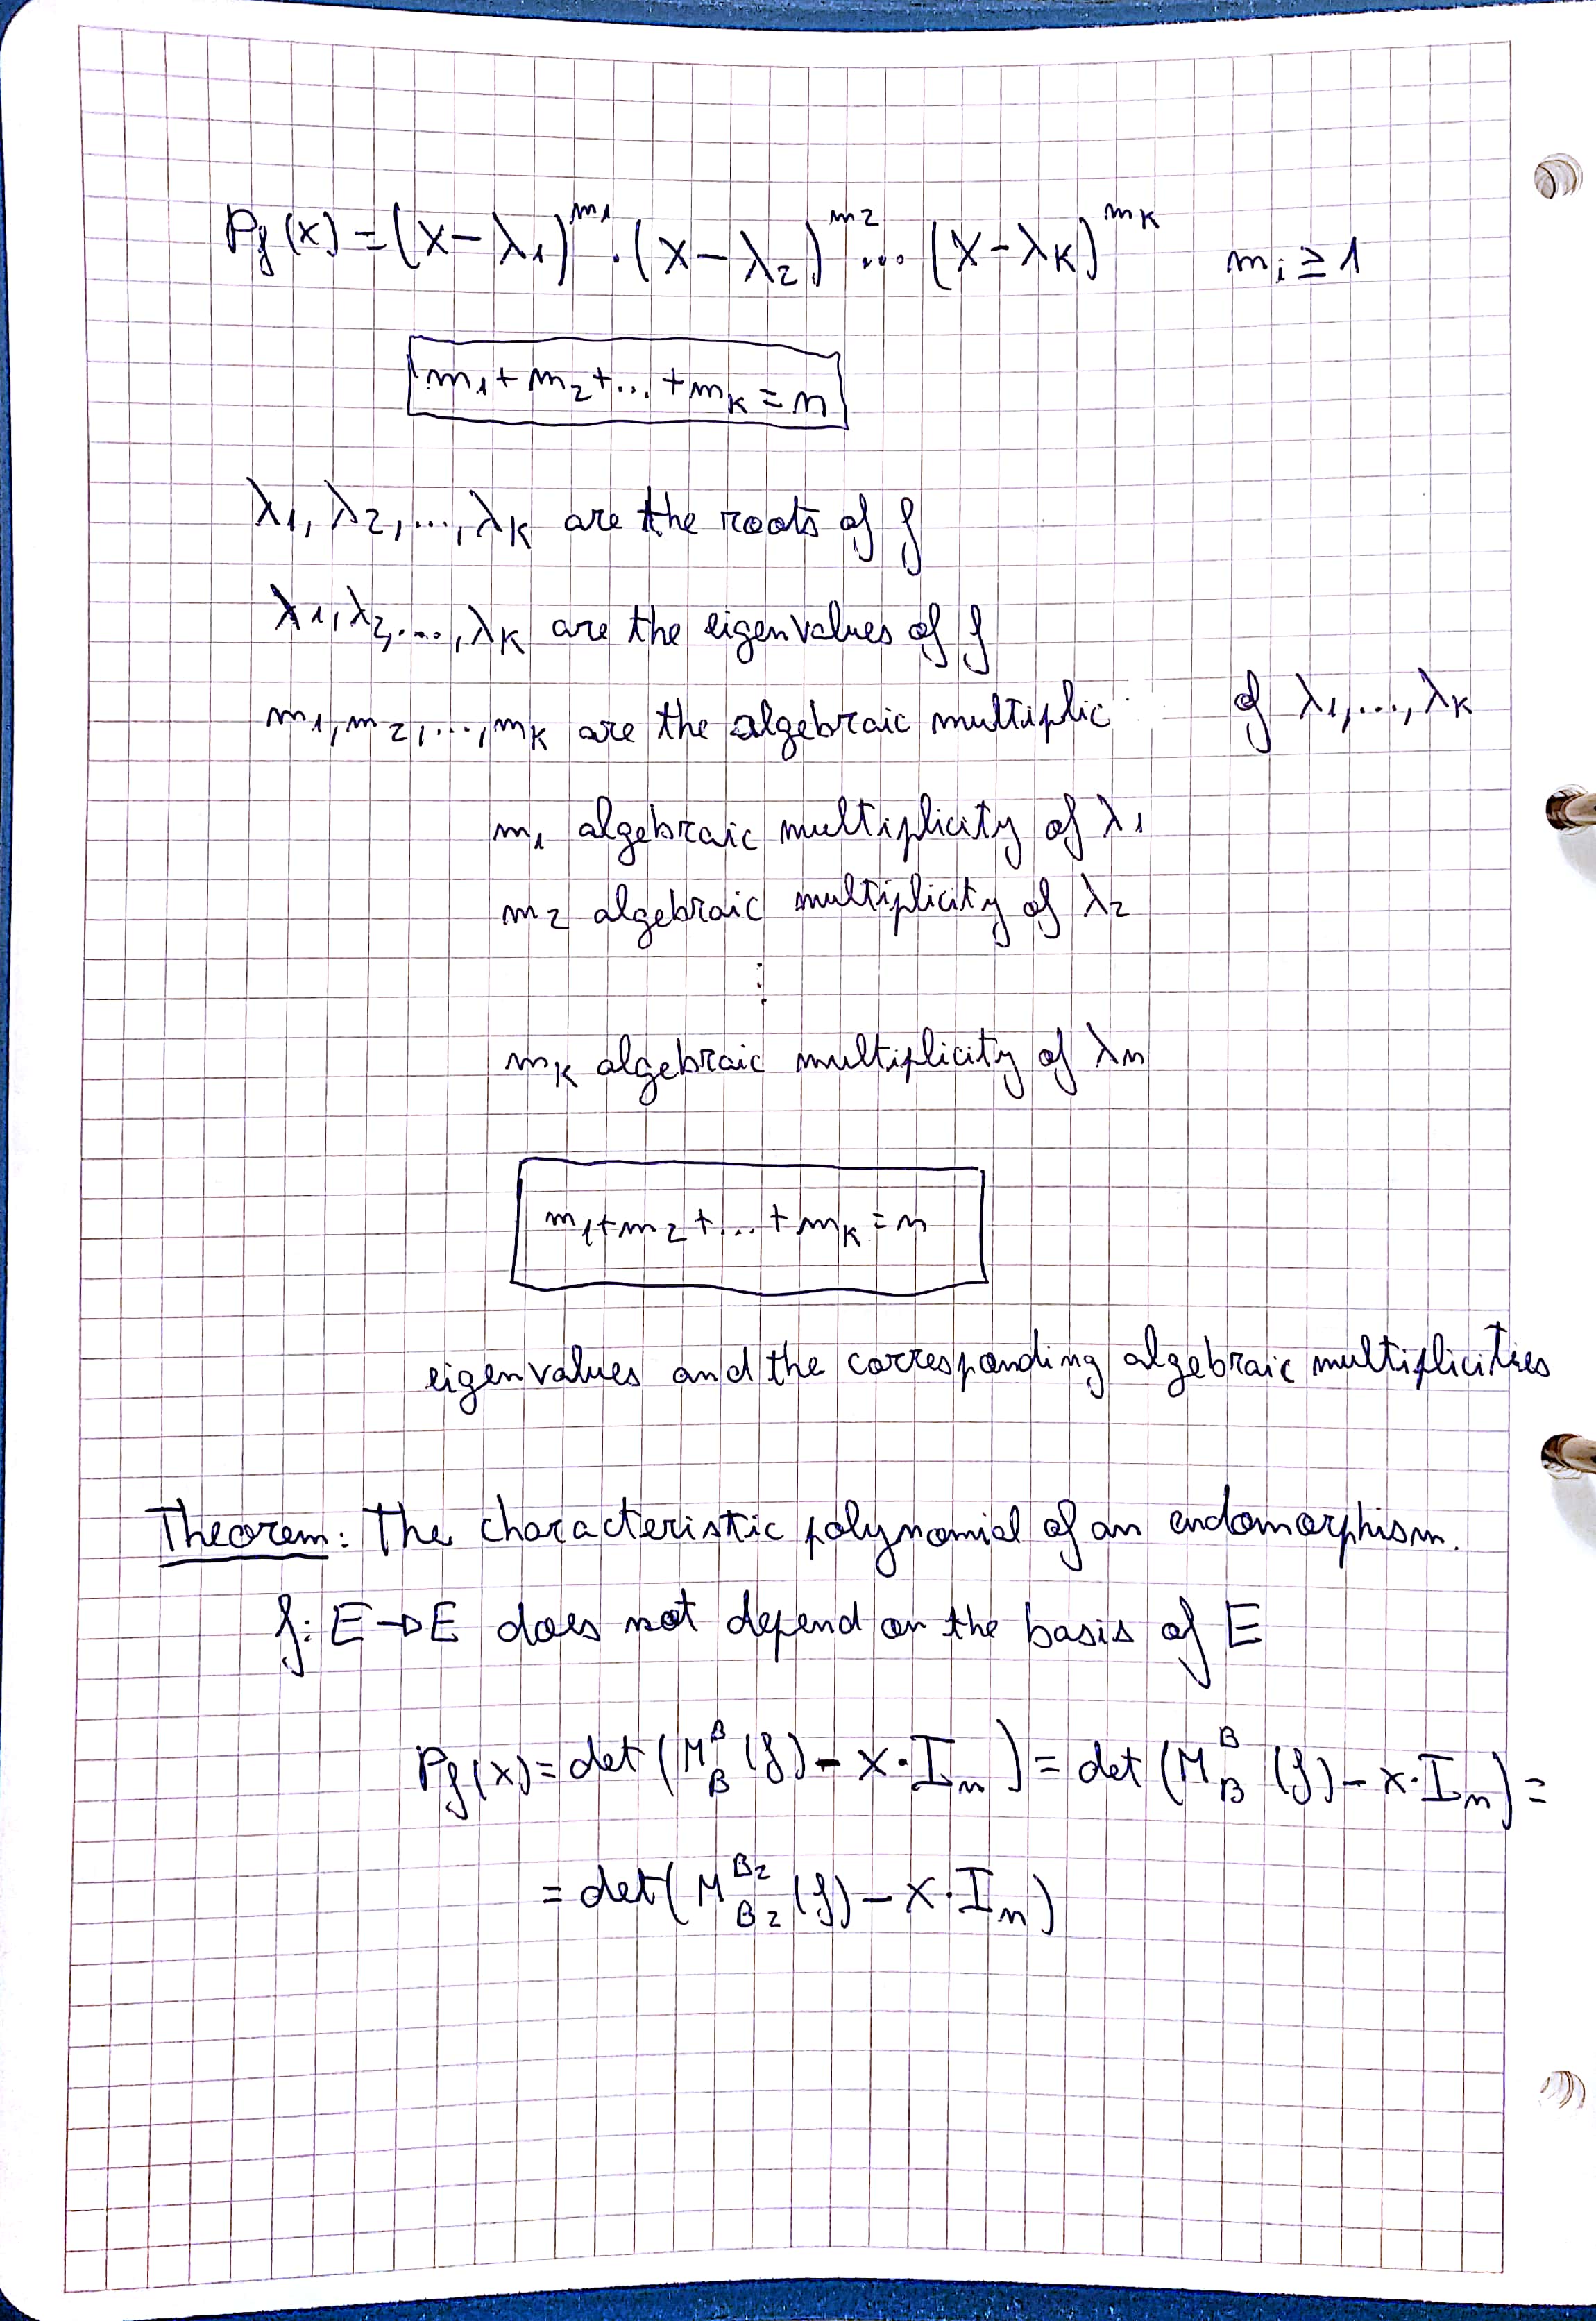 P_f(x) = (x-λ1)^m1 · (x-λ2)^m2 ... (x-λK)^mK   mi ≥ 1
m1+m2+...+mK=n
λ1, λ2, ..., λK are the roots of f
λ1, λ2, ..., λK are the eigenvalues of f
m1, m2, ..., mK are the algebraic multiplic   of λ1, ..., λK
m1 algebraic multiplicity of λ1
m2 algebraic multiplicity of λ2
⋮
mK algebraic multiplicity of λn
m1+m2+...+mK=n
eigenvalues and the corresponding algebraic multiplicities
Theorem: The characteristic polynomial of an endomorphism.
f: E→E does not depend on the basis of E
P_f(x) = det (M_B^B (f) - x·I_n) = det (M_B^B (f) - x·I_n) =
= det (M_B2^B2 (f) - x·I_n)